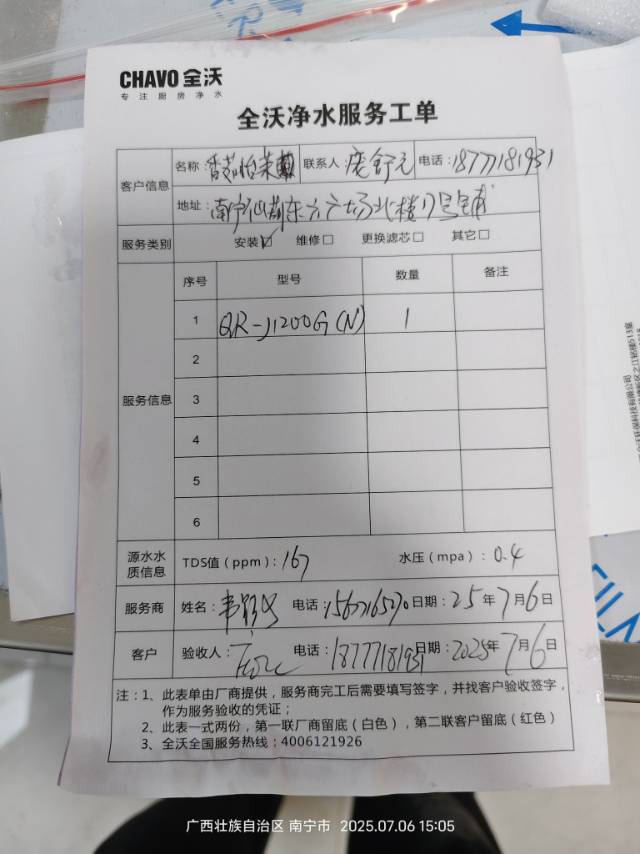 CHAVO 全沃
专注厨房净水
全沃净水服务工单
客户信息 名称： 联系人 电话：18777181931
地址：南宁仙葫东方广场北楼17号铺
服务类别 安装☑ 维修□ 更换滤芯□ 其它□
服务信息 序号 型号 数量 备注
1 QR-J1200G(N) 1
2
3
4
5
6
源水水质信息 TDS值（ppm）：167 水压（mpa）：0.4
服务商 姓名： 电话： 日期：25年7月6日
客户 验收人： 电话：18777181931 日期：2025年7月6日
注：1、此表单由厂商提供，服务商完工后需要填写签字，并找客户验收签字，
作为服务验收的凭证；
2、此表一式两份，第一联厂商留底（白色），第二联客户留底（红色）
3、全沃全国服务热线：4006121926
广西壮族自治区 南宁市 2025.07.06 15:05